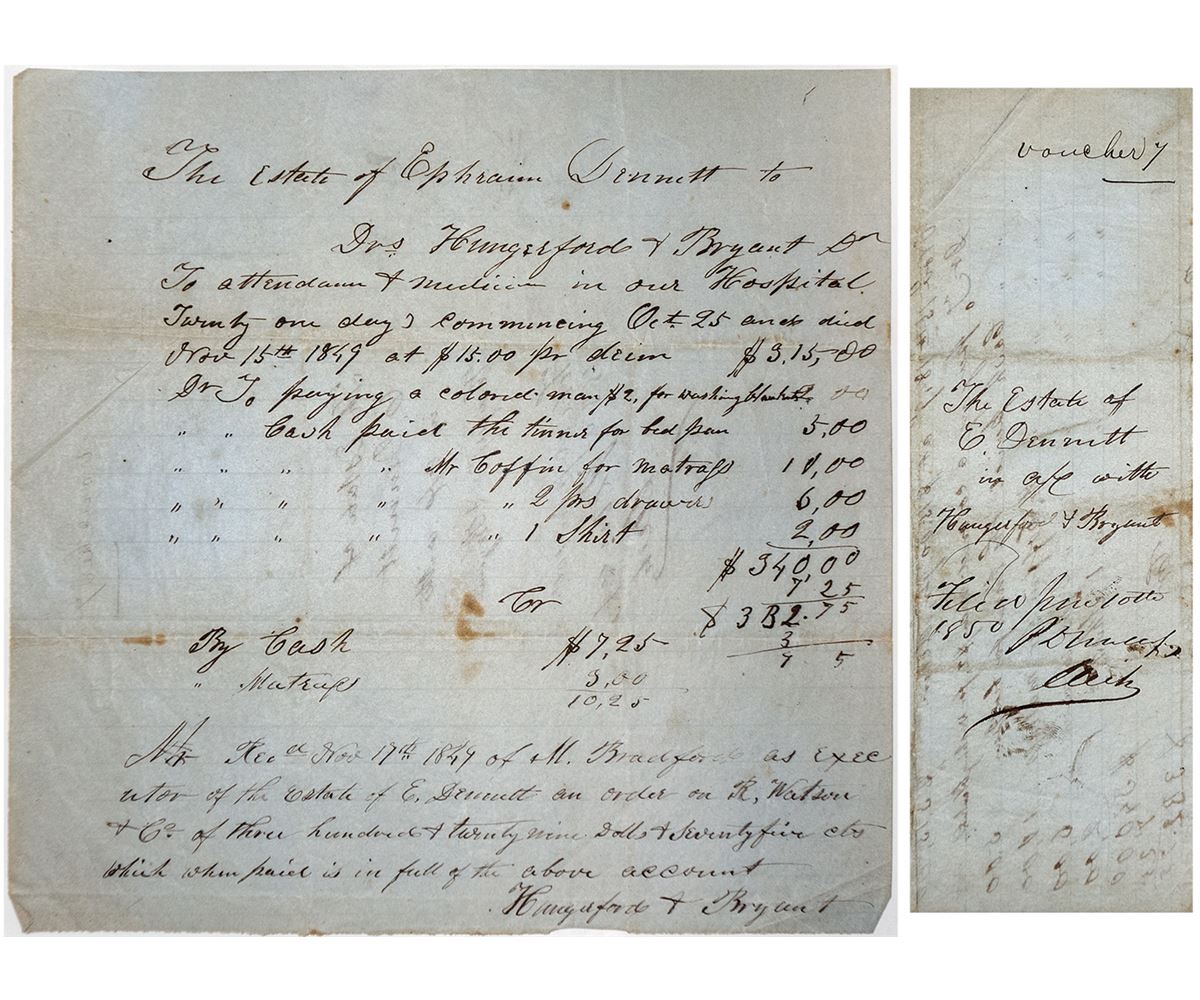 The Estate of Ephraim Dennett to
Drs Hungerford & Bryant Dr
To attendann & medicin in our Hospital.
Twenty one days commencing Oct 25 and died
Nov 15th 1849 at $15.00 pr deim $3,15,00
Dr To paying a colored man $2, for washing blankets 2 00
" " Cash paid the tinner for bed pan 5,00
" " " " Mr Coffin for matrass 10,00
" " " " " 2 prs drawers 6,00
" " " " " 1 Shirt 2,00
$ 340,00
7,25
Cr $ 332.75
By Cash $7,25 3
7 5
" Matrass 3,00
10,25
Recd Nov 17th 1849 of M. Bradford as exec
utor of the Estate of E. Dennett an order on R, Watson
& Co of three hundred & twenty nine Dolls & Seventyfive cts
which when paid is in full of the above account
Hungerford & Bryant
voucher 7
The Estate of
E. Dennett
in a/c with
Hungerford & Bryant
Filed
1850